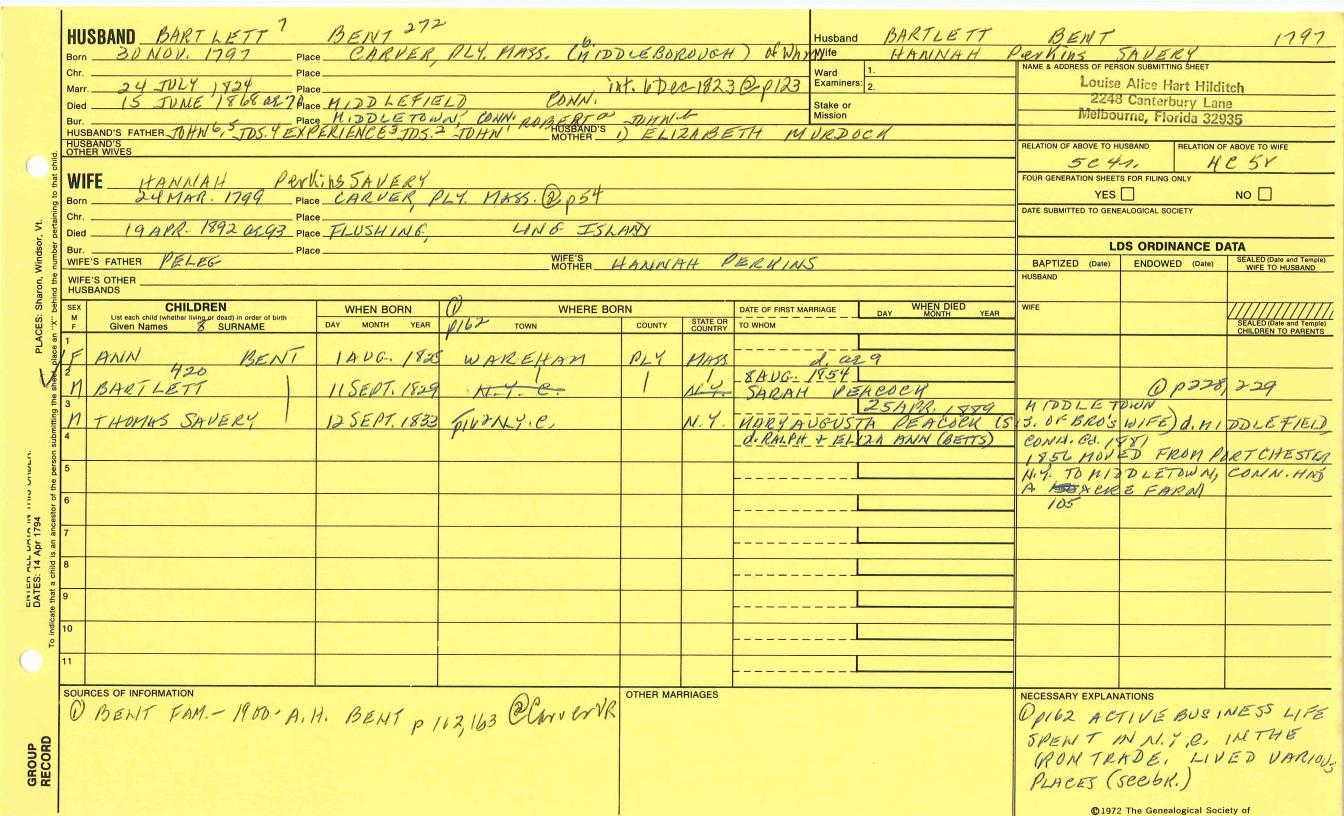 HUSBAND BARTLETT 7 BENT 272
Born 30 NOV. 1797 Place CARVER, PLY. MASS. (MIDDLEBOROUGH) of Whm
Chr. Place
Marr. 24 JULY 1824 Place int. 6 Dec 1823 @ p123
Died 15 JUNE 1868 or 70 Place MIDDLEFIELD CONN.
Bur. Place MIDDLETOWN, CONN.
HUSBAND'S FATHER JOHN 6, 5 JOS. 4 EXPERIENCE 3 JOS. 2 JOHN 1 ROBERT a JOHN b HUSBAND'S MOTHER 1) ELIZABETH MURDOCK
HUSBAND'S OTHER WIVES
WIFE HANNAH Perkins SAVERY
Born 24 MAR. 1799 Place CARVER, PLY. MASS. @ p54
Chr. Place
Died 19 APR. 1892 or 93 Place FLUSHING, LONG ISLAND
Bur. Place
WIFE'S FATHER PELEG WIFE'S MOTHER HANNAH PERKINS
WIFE'S OTHER HUSBANDS
Husband BARTLETT BENT 1797
Wife HANNAH Perkins SAVERY
Ward Examiners: 1.
2.
Stake or Mission
NAME & ADDRESS OF PERSON SUBMITTING SHEET
Louise Alice Hart Hilditch
2248 Canterbury Lane
Melbourne, Florida 32935
RELATION OF ABOVE TO HUSBAND RELATION OF ABOVE TO WIFE
5C4r. 4C 5r
FOUR GENERATION SHEETS FOR FILING ONLY
YES NO
DATE SUBMITTED TO GENEALOGICAL SOCIETY
LDS ORDINANCE DATA
BAPTIZED (Date) ENDOWED (Date) SEALED (Date and Temple) WIFE TO HUSBAND
HUSBAND
WIFE
SEALED (Date and Temple) CHILDREN TO PARENTS
SEX M F CHILDREN WHEN BORN ① WHERE BORN DATE OF FIRST MARRIAGE WHEN DIED
List each child (whether living or dead) in order of birth
Given Names 8 SURNAME DAY MONTH YEAR p162 TOWN COUNTY STATE OR COUNTRY TO WHOM DAY MONTH YEAR
1 F ANN BENT 1 AUG. 1825 WAREHAM PLY MASS d. ae 9
420
2 M BARTLETT 11 SEPT. 1829 N.Y.C. N.Y. 8 AUG. 1854
SARAH PEACOCK @ p228, 229
3 M THOMAS SAVERY 12 SEPT. 1833 p162 N.Y.C. N.Y. 25 APR. 1889 MIDDLETOWN
MARY AUGUSTA PEACOCK (SIS. OF BRO'S WIFE) d. MIDDLEFIELD,
d. RALPH + ELIZA ANN (BETTS) CONN. 1881
1856 MOVED FROM PORTCHESTER
N.Y. TO MIDDLETOWN, CONN. HAD
A ACRE FARM
105
4
5
6
7
8
9
10
11
SOURCES OF INFORMATION
① BENT FAM. - 1900 - A.H. BENT p 162, 163 @ Carver VR
OTHER MARRIAGES
NECESSARY EXPLANATIONS
① p162 ACTIVE BUSINESS LIFE
SPENT IN N.Y.C. IN THE
IRON TRADE. LIVED VARIOUS
PLACES (see bk.)
©1972 The Genealogical Society of
PLACES: Sharon, Windsor, Vt.
ENTER ALL DATA IN THIS ORDER:
DATES: 14 Apr 1794
To indicate that a child is an ancestor of the person submitting the sheet, place an "X" behind the number pertaining to that child.
GROUP RECORD